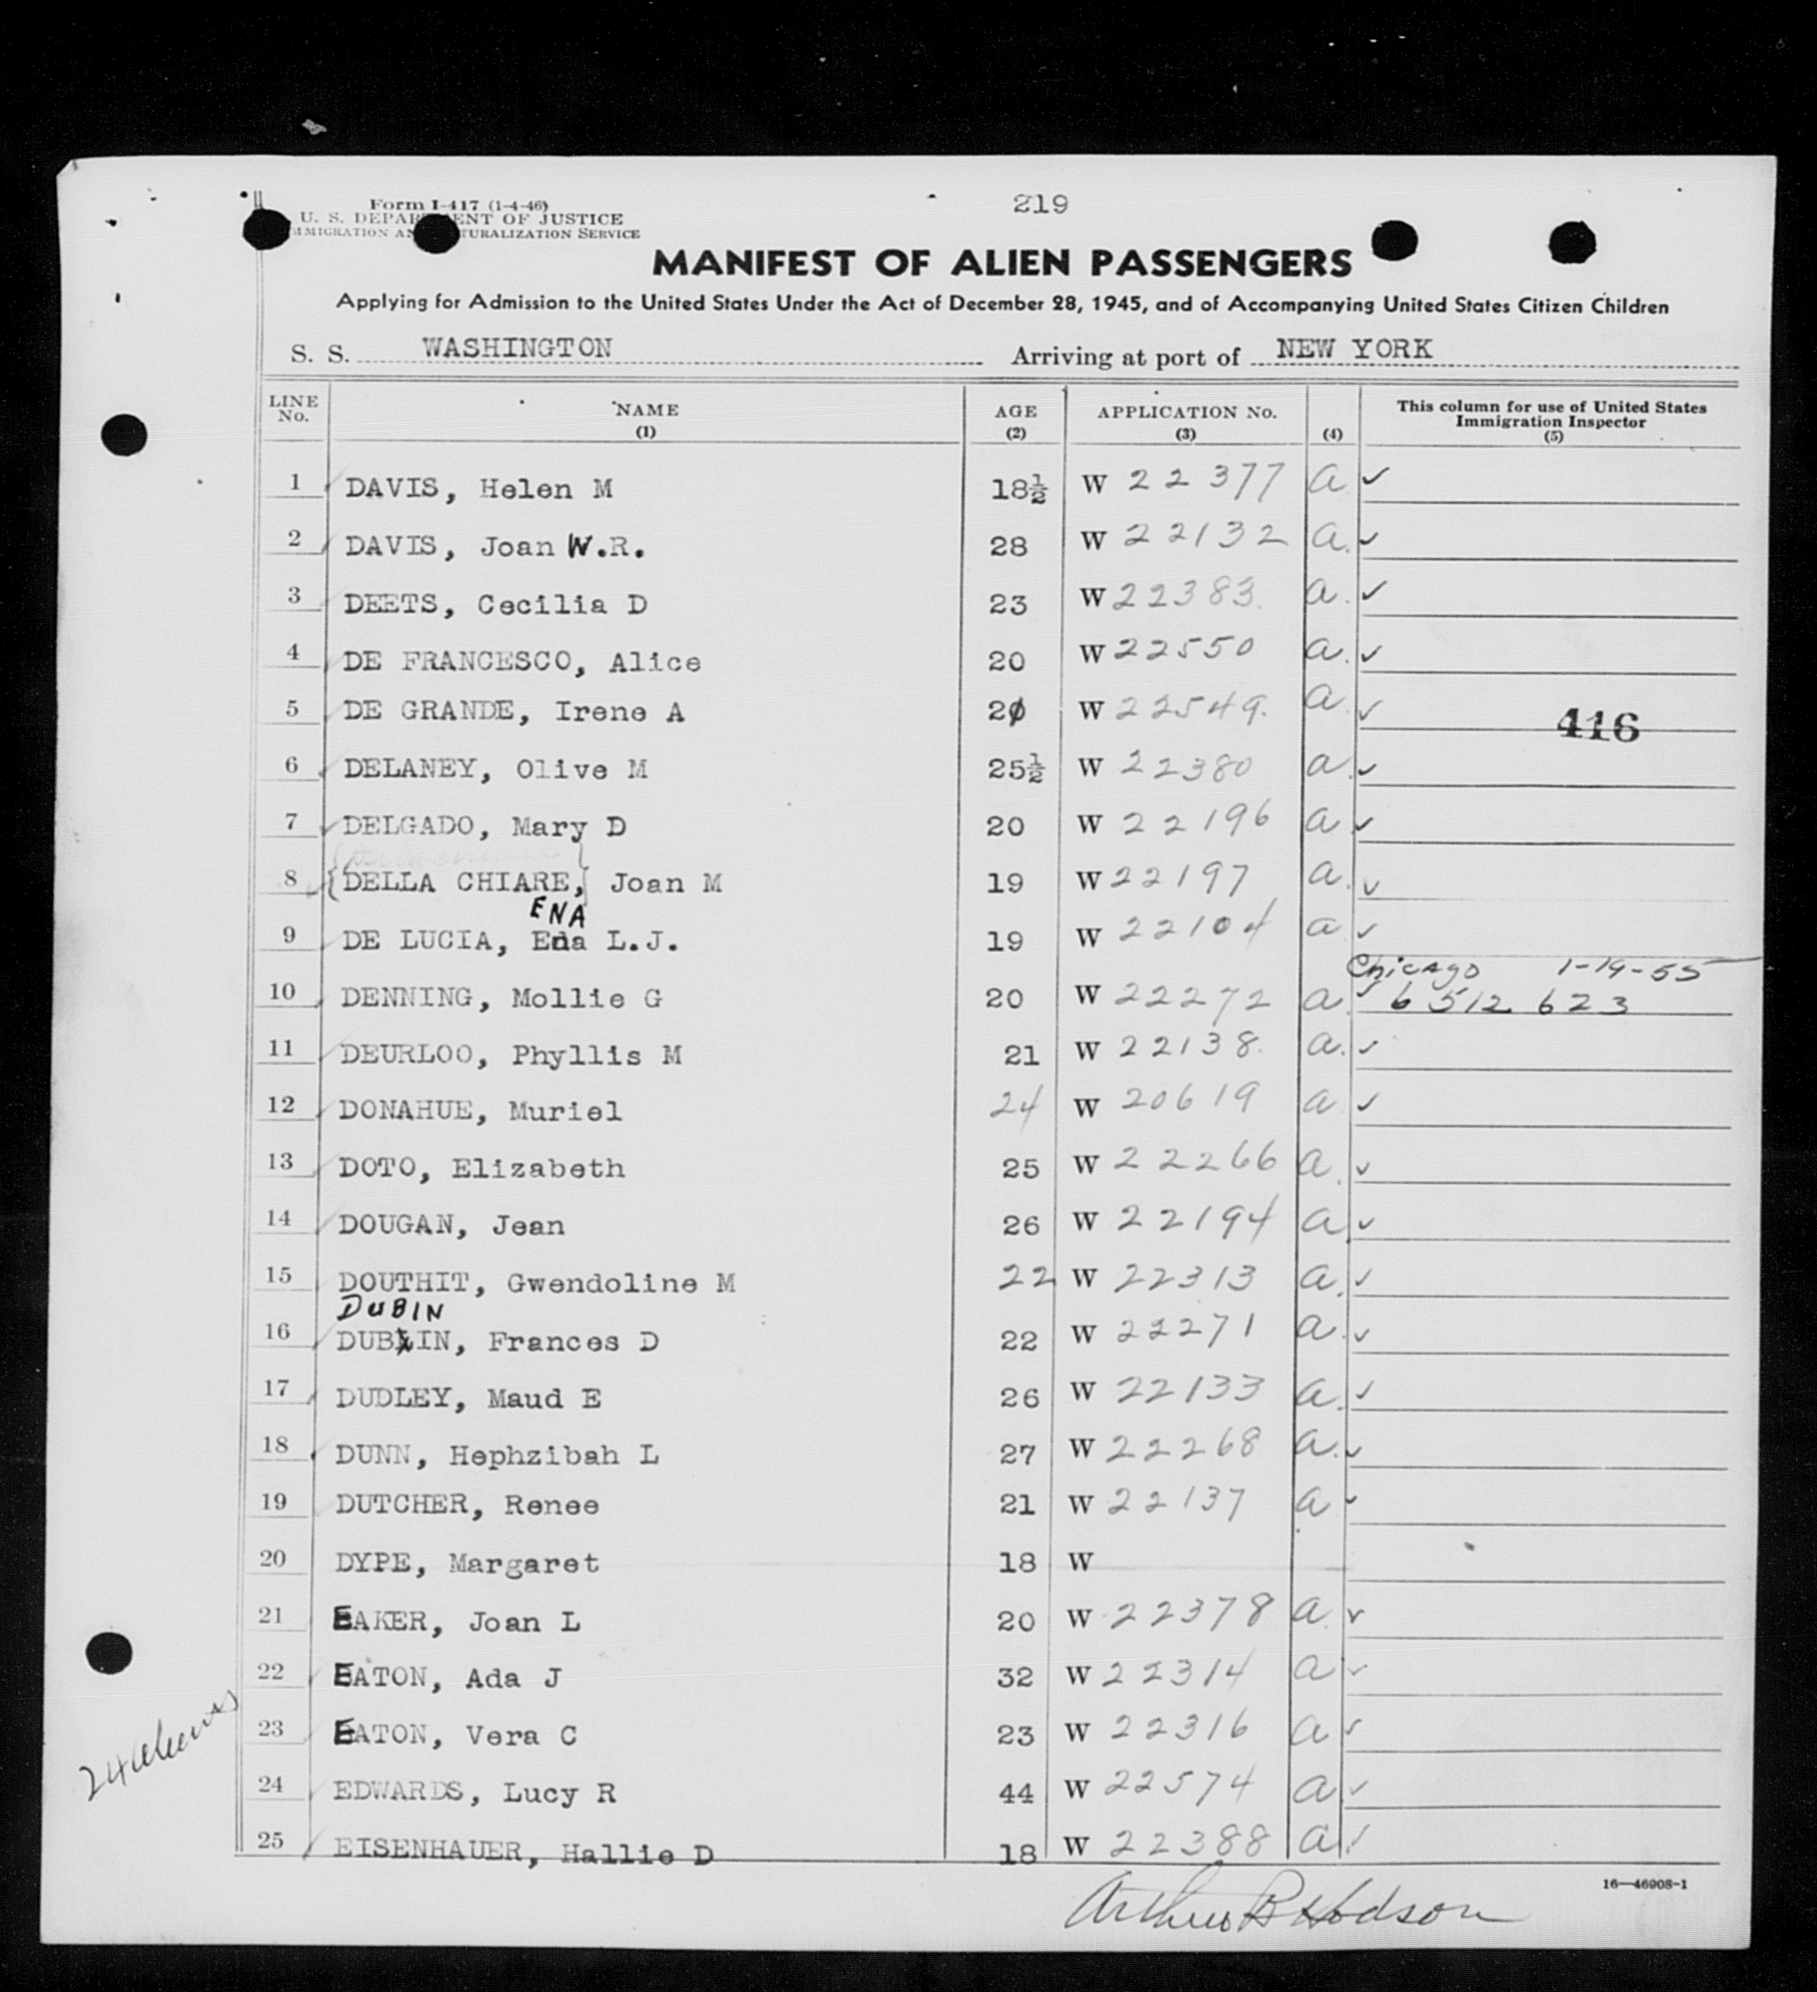 219
Form I-417 (1-4-46)
U. S. DEPARTMENT OF JUSTICE
IMMIGRATION AND NATURALIZATION SERVICE
MANIFEST OF ALIEN PASSENGERS
Applying for Admission to the United States Under the Act of December 28, 1945, and of Accompanying United States Citizen Children
S. S. WASHINGTON Arriving at port of NEW YORK
LINE No. NAME (1) AGE (2) APPLICATION No. (3) (4) This column for use of United States Immigration Inspector (5)
1 DAVIS, Helen M 18½ W 22377 a ✓
2 DAVIS, Joan W.R. 28 W 22132 a. ✓
3 DEETS, Cecilia D 23 W 22383. a. ✓
4 DE FRANCESCO, Alice 20 W 22550 a. ✓
5 DE GRANDE, Irene A 20 W 22549. a ✓
416
6 DELANEY, Olive M 25½ W 22380 a. ✓
7 DELGADO, Mary D 20 W 22196 a ✓
8 {DELLA CHIARE,} Joan M 19 W 22197 a. ✓
ENA
9 DE LUCIA, Eda L.J. 19 W 22104 a ✓
Chicago 1-19-55
10 DENNING, Mollie G 20 W 22272 a. ✓ 6512 623
11 DEURLOO, Phyllis M 21 W 22138. a. ✓
12 DONAHUE, Muriel 24 W 20619 a ✓
13 DOTO, Elizabeth 25 W 22266 a. ✓
14 DOUGAN, Jean 26 W 22194 a. ✓
15 DOUTHIT, Gwendoline M 22 W 22313 a. ✓
DUBIN
16 DUBLIN, Frances D 22 W 22271 a. ✓
17 DUDLEY, Maud E 26 W 22133 a. ✓
18 DUNN, Hephzibah L 27 W 22268 a. ✓
19 DUTCHER, Renee 21 W 22137 a ✓
20 DYPE, Margaret 18 W
21 EAKER, Joan L 20 W 22378 a. ✓
22 EATON, Ada J 32 W 22314 a ✓
23 EATON, Vera C 23 W 22316 a ✓
24 EDWARDS, Lucy R 44 W 22574 a ✓
25 EISENHAUER, Hallie D 18 W 22388 a ✓
24 aliens
16—46908-1
Arthur B Hodson